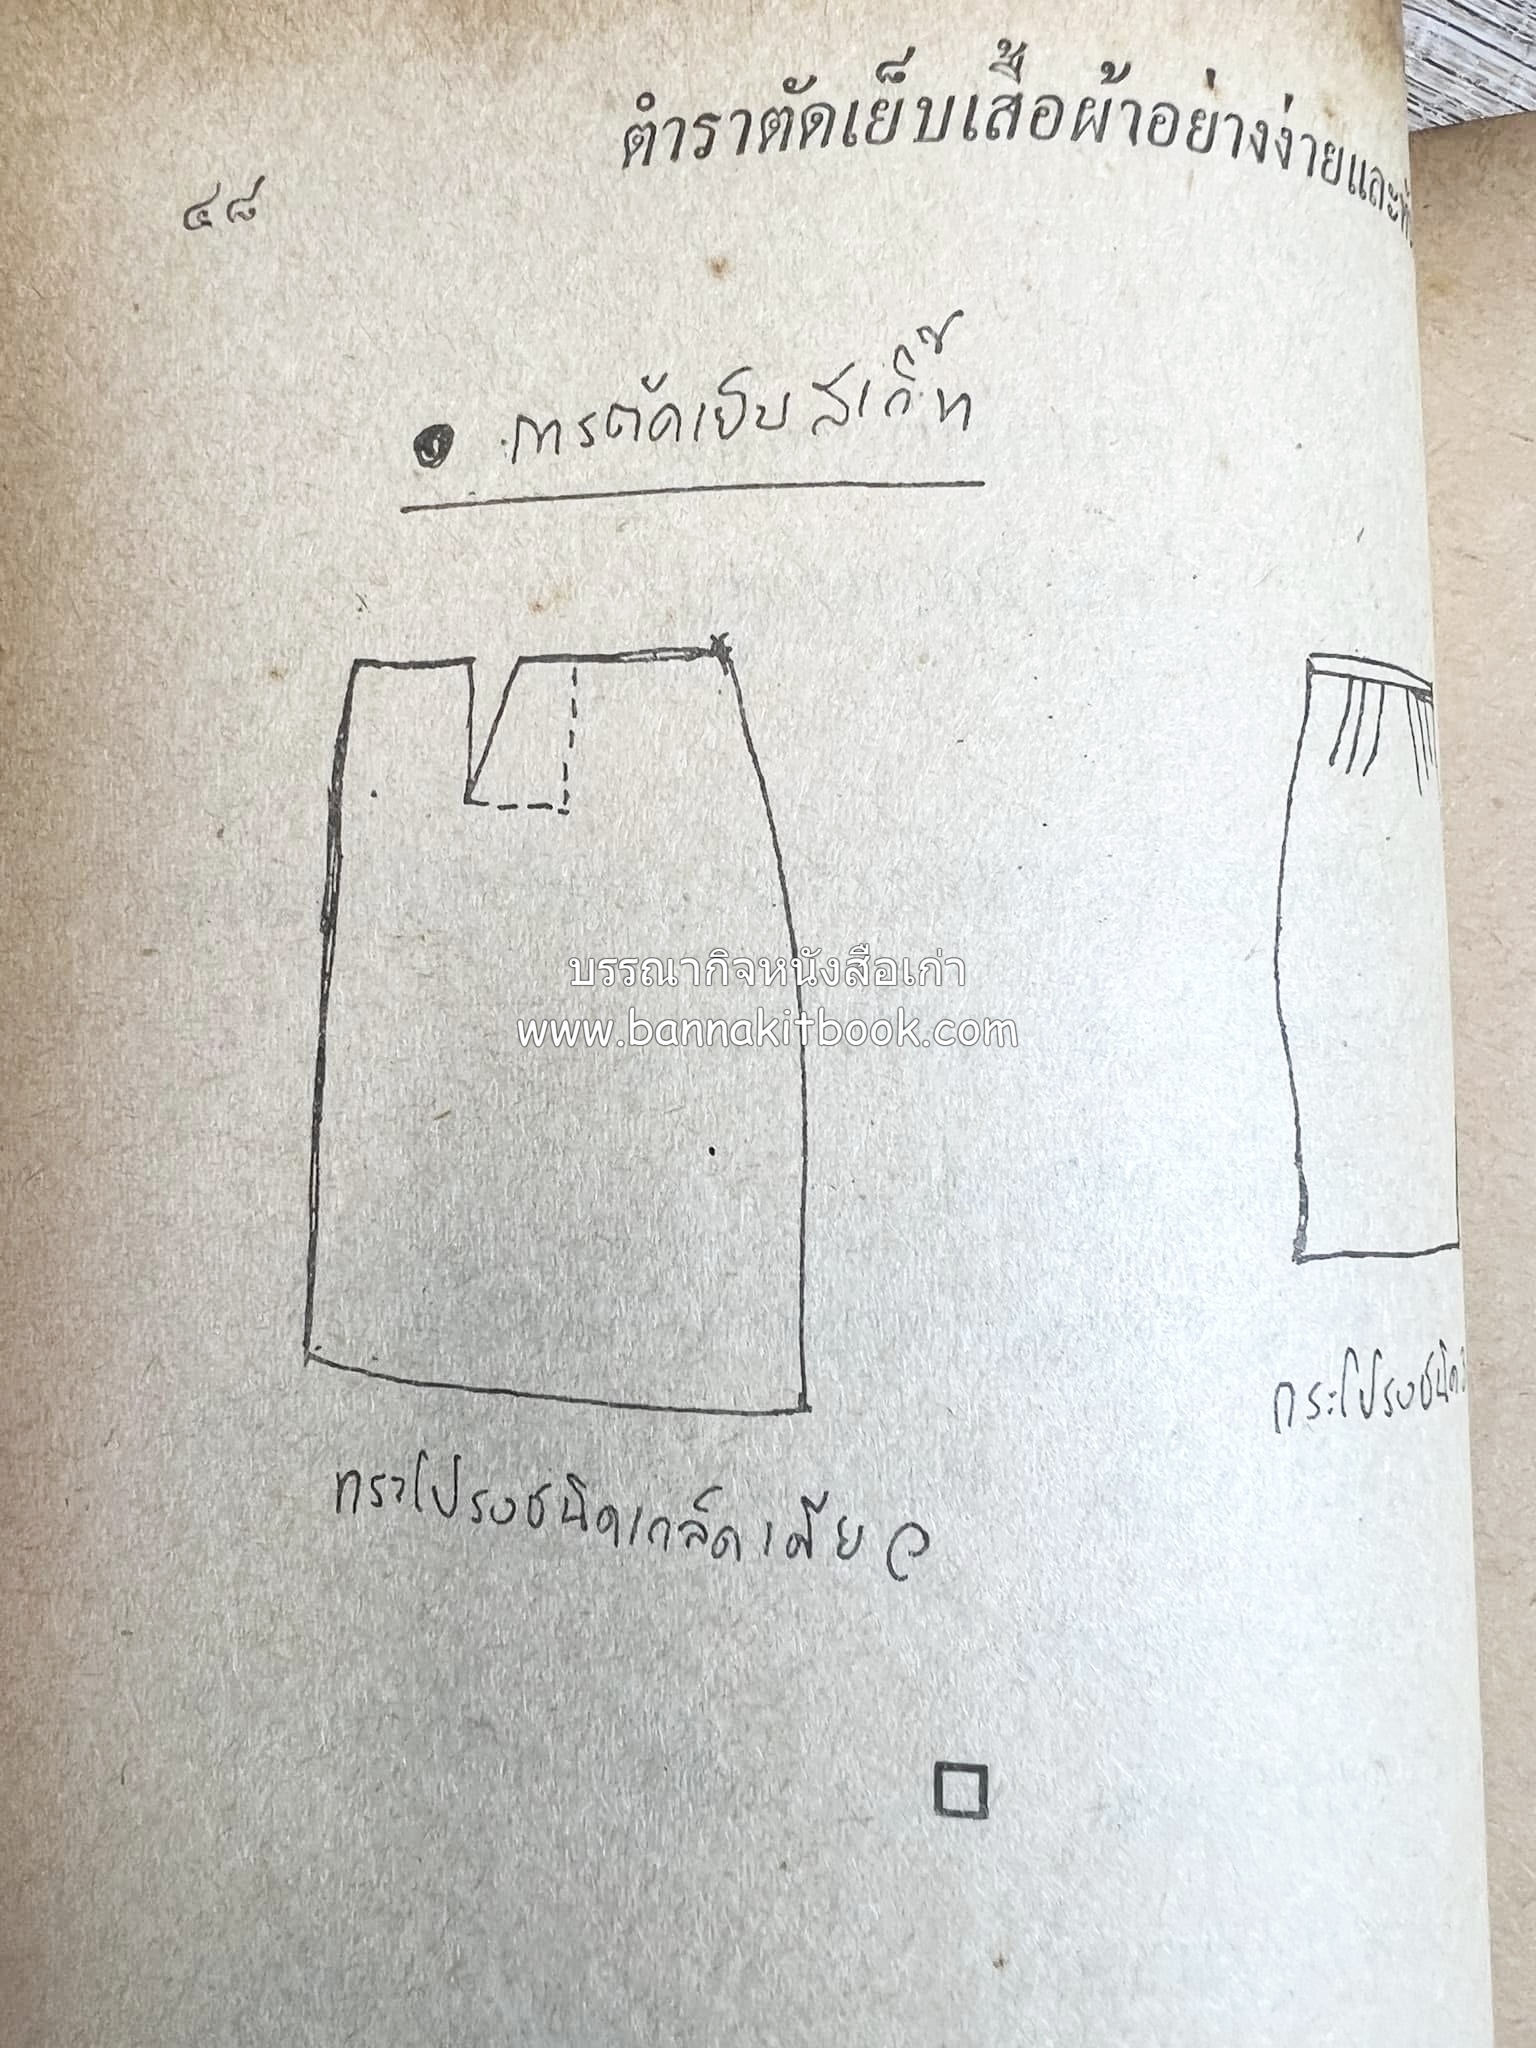 ตำราตัดเย็บเสื้อผ้าอย่างง่ายและ
๔๘
การตัดเย็บสเก๊ิท
บรรณากิจหนังสือเก่า
www.bannakitbook.com
กระโปรงชนิด
กระโปรงชนิดเกล็ดเดียว